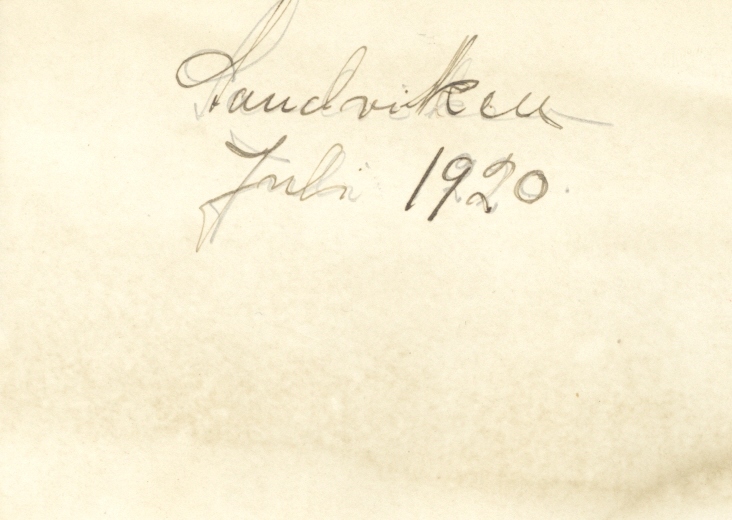 Sandviken
Juli 1920.